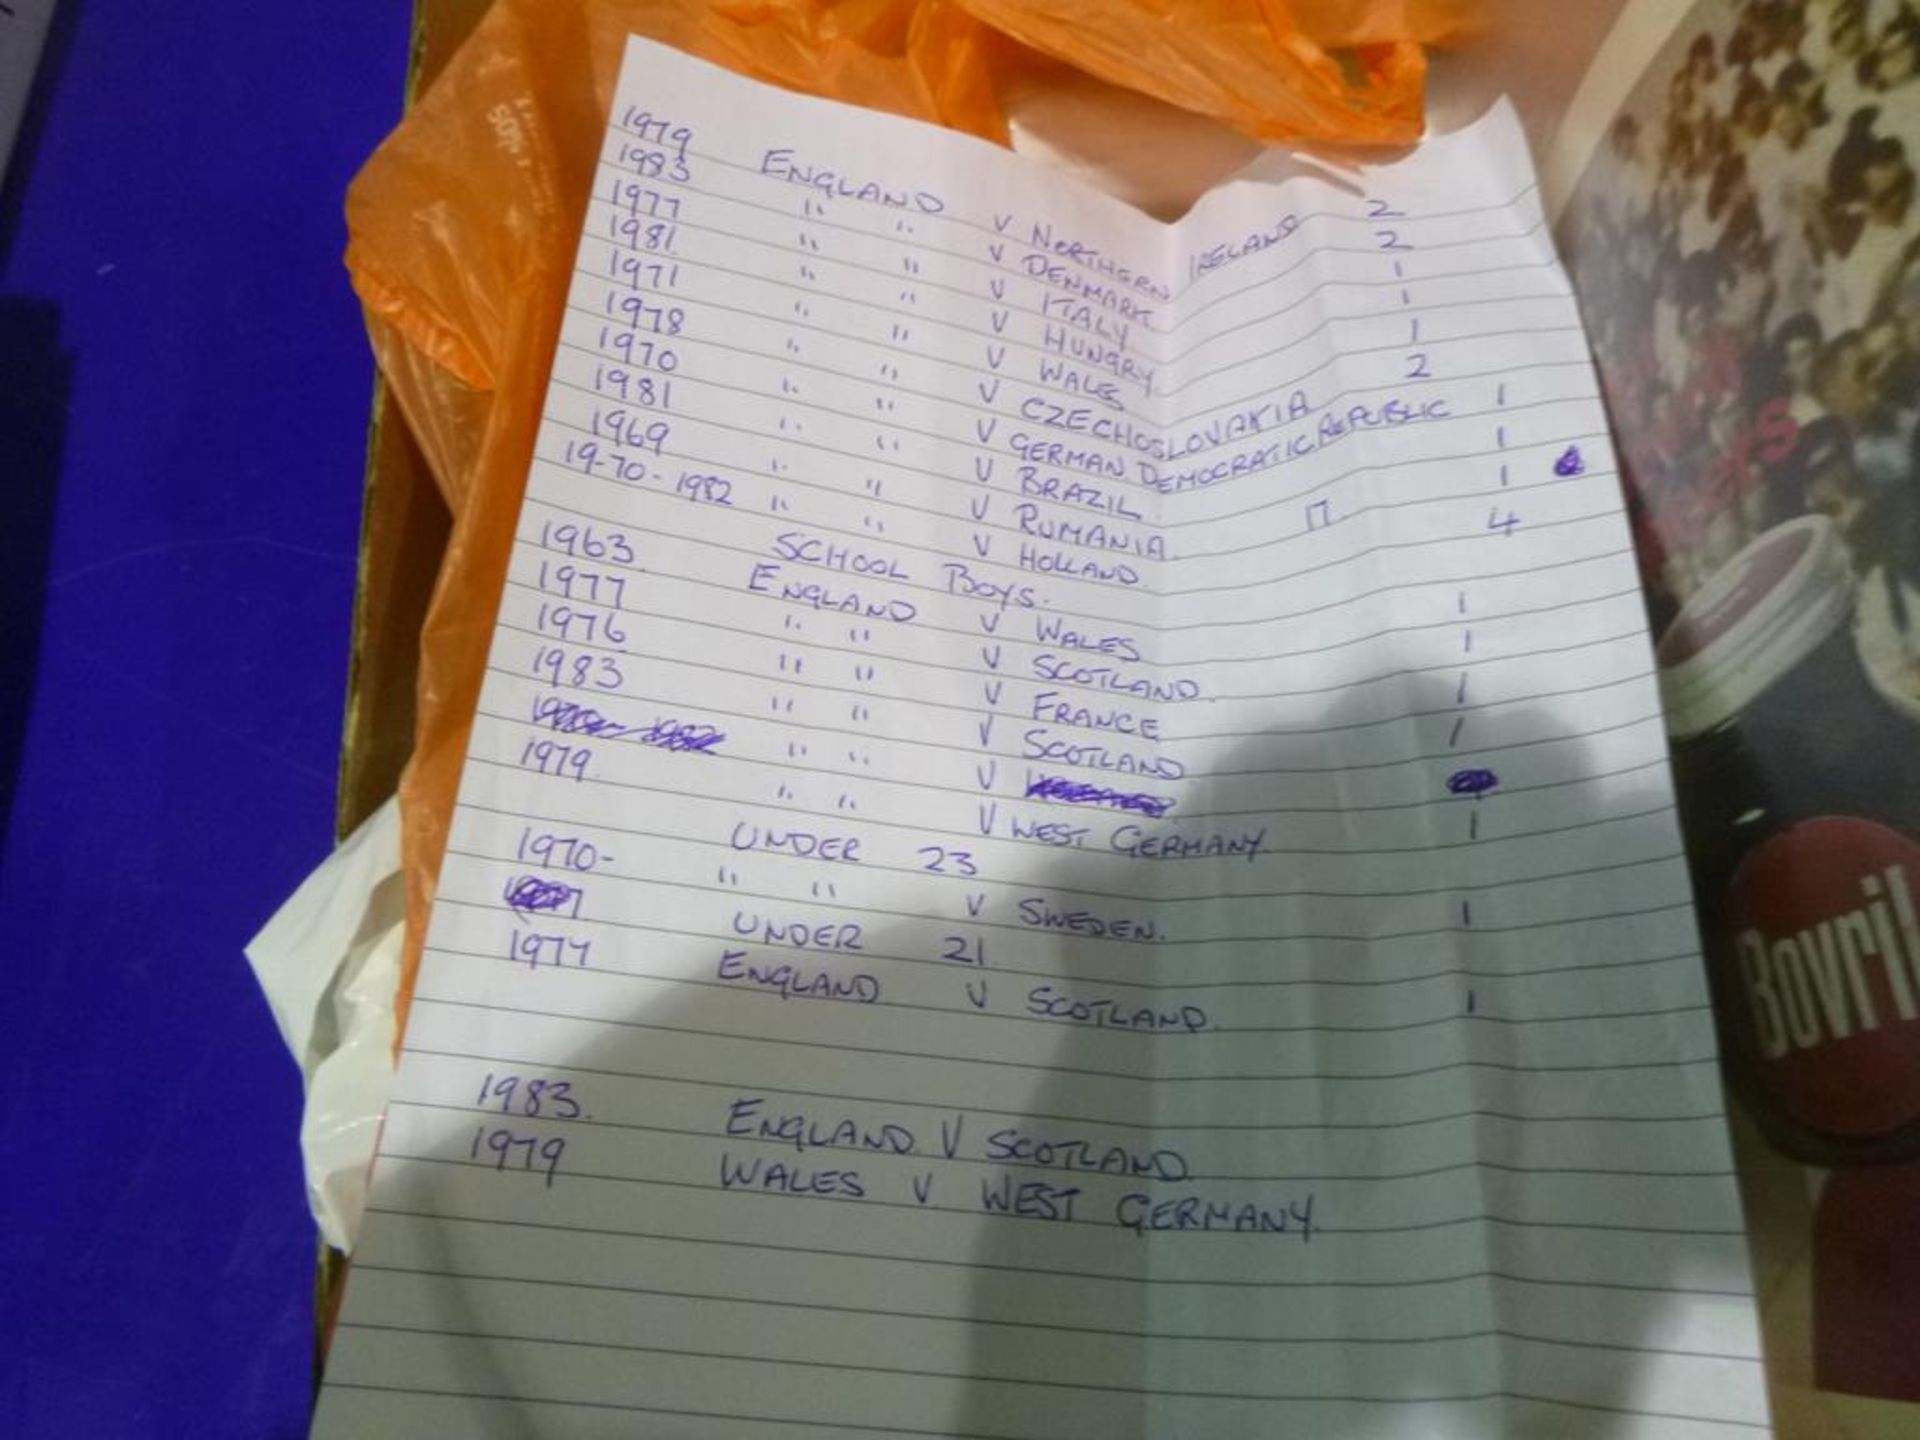 1979 ENGLAND V NORTHERN IRELAND 2
1983 " " V DENMARK 2
1977 " " V ITALY 1
1981 " " V HUNGRY 1
1971 " " V WALES 1
1978 " " V CZECHOSLOVAKIA 2
1970 " " V GERMAN DEMOCRATIC REPUBLIC 1
1981 " " V BRAZIL 1
1969 " " V RUMANIA 1
19-70-1982 " " V HOLLAND 4
SCHOOL BOYS.
1963 ENGLAND V WALES 1
1977 " " V SCOTLAND 1
1976 " " V FRANCE 1
1983 " " V SCOTLAND 1
" " V
1979 " " V WEST GERMANY 1
UNDER 23
1970- " " V SWEDEN. 1
UNDER 21
1977 ENGLAND V SCOTLAND 1
1983. ENGLAND V SCOTLAND
1979 WALES V WEST GERMANY.
Bovril